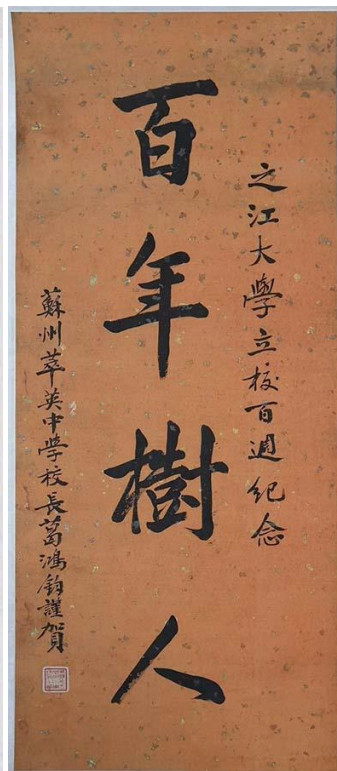 之江大學立校百週紀念
百年樹人
蘇州萃英中學校長葛鴻鈞謹賀